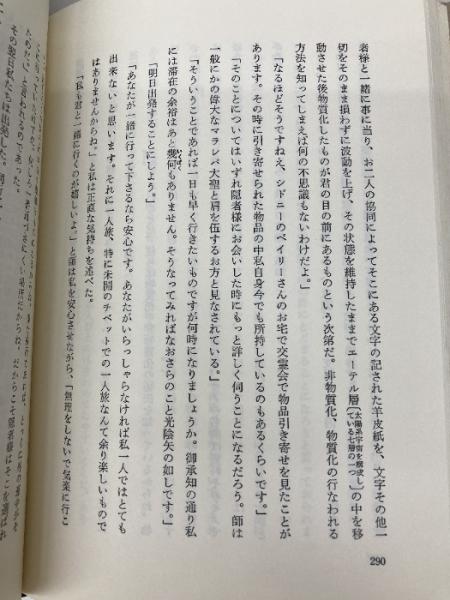 者様と一緒に事に当り、お二人の協同によってそこにある文字の記された羊皮紙を、文字その他一
切をそのまま損わずに波動を上げ、その状態を維持したままでエーテル層〔太陽系宇宙を構成し
ている七層の一つ〕の中を移
動させた後物質化したものが君の目の前にあるものという次第だ。非物質化、物質化の行なわれる
方法を知ってしまえば何の不思議もないわけだよ。」
「なるほどそうですねえ、シドニーのベイリーさんのお宅で交霊会で物品引き寄せを見たことが
あります。その時に引き寄せられた物品の中私自身今でも所持しているのもあるくらいです。」
「そのことについてはいずれ隠者様にお会いした時にもっと詳しく伺うことになるだろう。師は
一般にかの偉大なマラレパ大聖と肩を伍するお方と見なされている。」
「そういうことであれば一日も早く行きたいものですが何時になりましょうか。御承知の通り私
には滞在の余裕はあと幾何もありません。そうなってみればなおさらのこと光陰矢の如しです。」
「明日出発することにしよう。」
「あなたが一緒に行って下さるなら安心です。あなたがいらっしゃらなければ私一人ではとても
出来ないと思います。それに一人旅、特に未開のチベットでの一人旅なんて余り楽しいもので
はありませんからね。」と私は正直な気持ちを述べた。
「私も君と一緒に行くのが嬉しいよ。」と師は私を安心させながら、「無理をしないで気楽に行こ
290
その翌日私たちは出発した。